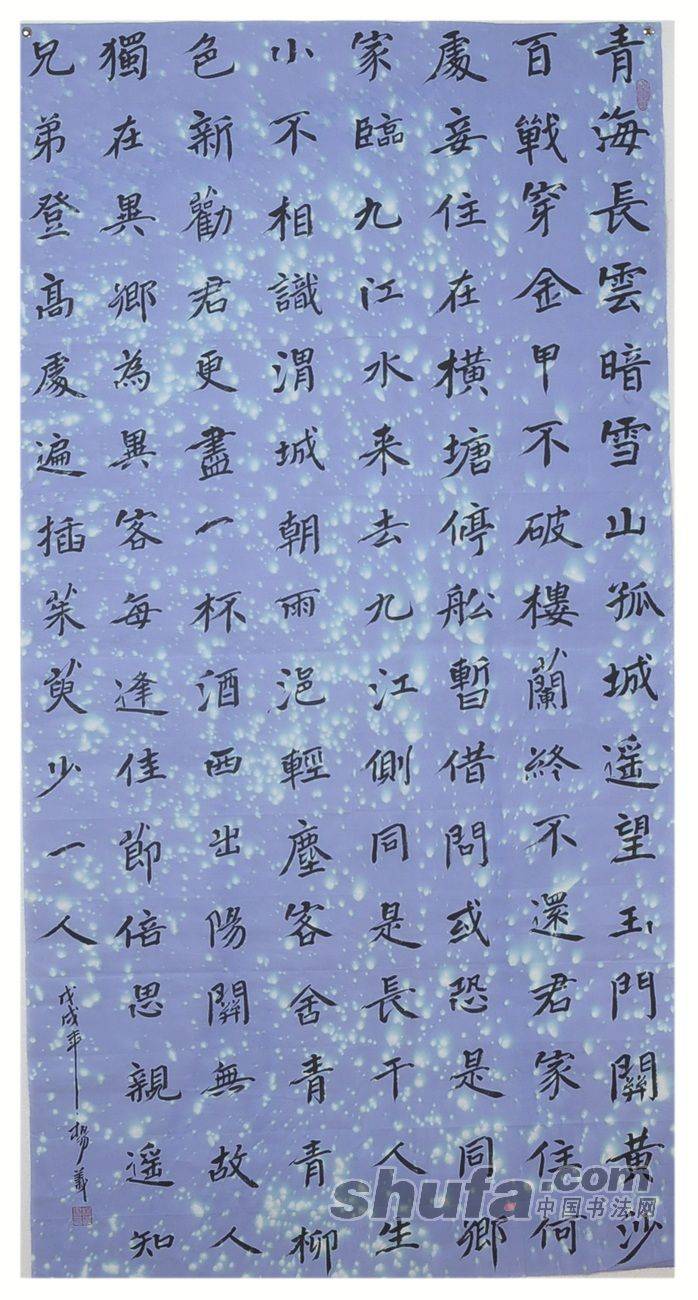 青海長雲暗雪山孤城遥望玉門關黄沙
百戰穿金甲不破樓蘭終不還君家住何
處妾住在橫塘停舩暫借問或恐是同鄉
家臨九江水来去九江側同是長干人生
小不相識渭城朝雨浥輕塵客舍青青柳
色新勸君更盡一杯酒西出陽關無故人
獨在異鄉為異客每逢佳節倍思親遥知
兄弟登髙處遍插茱萸少一人
戊戌年 楊義
shufa.com
中国书法网